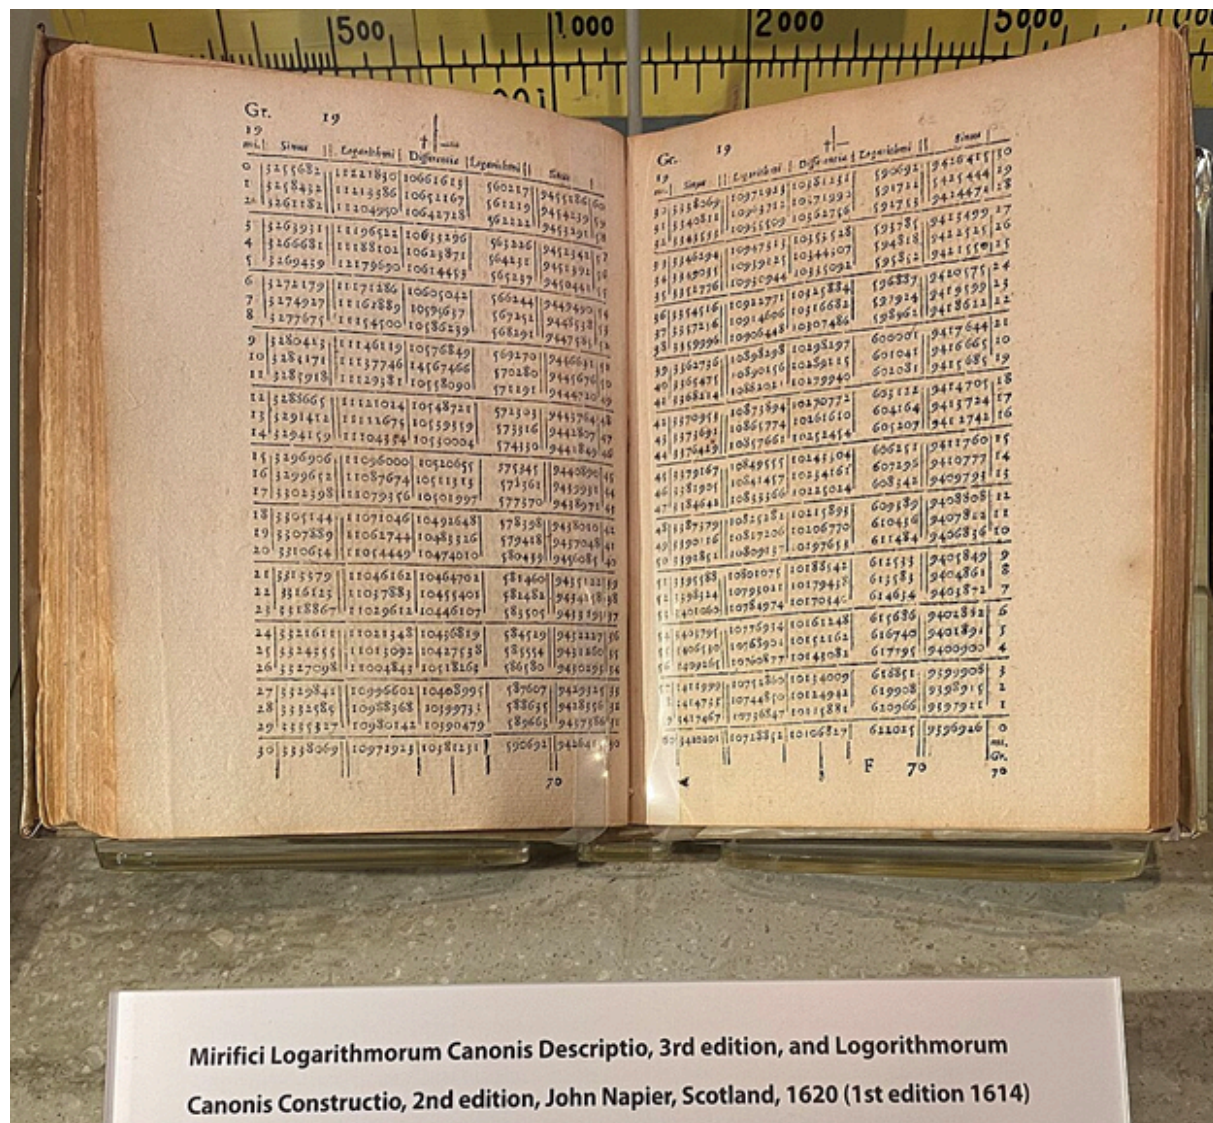 500 1000 2000 5000
Gr. 19
19
mi. Sinus Logarithmi Differentiæ Logarithmi Sinus
0 3255682 11221830 10661613 560217 9455186 60
1 3258432 11213386 10652167 561219 9454239 59
2 3261182 11204950 10642728 562222 9453291 58
3 3263932 11196522 10633296 563226 9452342 57
4 3266681 11188102 10623871 564231 9451392 56
5 3269430 11179690 10614453 565237 9450441 55
6 3272179 11171286 10605042 566244 9449490 54
7 3274927 11162889 10595637 567252 9448538 53
8 3277675 11154500 10586239 568261 9447585 52
9 3280423 11146119 10576849 569270 9446631 51
10 3283171 11137746 10567466 570280 9445676 50
11 3285918 11129381 10558090 571291 9444720 49
12 3288665 11121024 10548721 572303 9443764 48
13 3291412 11112675 10539359 573316 9442807 47
14 3294159 11104334 10530004 574330 9441849 46
15 3296906 11096000 10520655 575345 9440890 45
16 3299652 11087674 10511313 9439931 44
17 3302398 11079356 10501997 577370 9438971 43
18 3305144 11071046 10492648 578398 9438010 42
19 3307889 11062744 10483326 579418 9437048 41
20 3310634 11054449 10474010 580439 9436085 40
21 3313379 11046162 10464702 581460 9435122 39
22 3316123 11037883 10455401 582482 9434158 38
23 3318867 11029612 10446107 583505 9433193 37
24 3321611 11021348 10436819 584529 9432227 36
25 3324355 11013092 10427538 585554 9431260 35
26 3327098 11004843 10418263 586580 9430293 34
27 3329841 10996602 10408995 587607 9429325 33
28 3332584 10988368 10399733 588635 9428356 32
29 3335327 10980142 10390479 589663 9427386 31
30 3338069 10971923 10381231 590692 9426415 30
70
Gr. 19
19
mi. Sinus Logarithmi Differentiæ Logarithmi Sinus
30 3338069 10971923 10381231 590692 9426415 30
31 3340811 10963712 10371990 591722 9425444 29
32 3343553 10955509 10362756 592753 9424472 28
33 3346294 10947313 10353528 593785 9423499 27
34 3349035 10939125 10344307 594818 9422525 26
35 3351776 10930944 10335092 595852 9421550 25
36 3354516 10922771 10325884 596887 9420575 24
37 3357256 10914606 10316682 597924 9419599 23
38 3359996 10906448 10307486 598962 9418622 22
39 3362736 10898298 10298297 600001 9417644 21
40 3365475 10890156 10289115 601041 9416665 20
41 3368214 10882021 10279940 602081 9415685 19
42 3370953 10873894 10270772 603122 9414705 18
43 3373691 10865774 10261610 604164 9413724 17
44 3376429 10857661 10252454 605207 9412742 16
45 3379167 10849555 10243304 606251 9411760 15
46 3381905 10841457 10234161 607296 9410777 14
47 3384642 10833366 10225024 608342 9409793 13
48 3387379 10825282 10215893 609389 9408808 12
49 3390116 10817206 10206770 610436 9407822 11
50 3392852 10809137 10197653 611484 9406836 10
51 3395588 10801075 10188542 612533 9405849 9
52 3398324 10793021 10179438 613583 9404861 8
53 3401060 10784974 10170340 614634 9403872 7
54 3403795 10776934 10161248 615686 9402882 6
55 3406530 10768902 10152162 616740 9401891 5
56 3409265 10760877 10143082 617795 9400900 4
57 3411999 10752860 10134009 618851 9399908 3
58 3414733 10744850 10124942 619908 9398915 2
59 3417467 10736847 10115881 620966 9397921 1
60 3420201 10728852 10106827 622025 9396926 0
mi.
Gr.
F 70 70
Mirifici Logarithmorum Canonis Descriptio, 3rd edition, and Logorithmorum
Canonis Constructio, 2nd edition, John Napier, Scotland, 1620 (1st edition 1614)